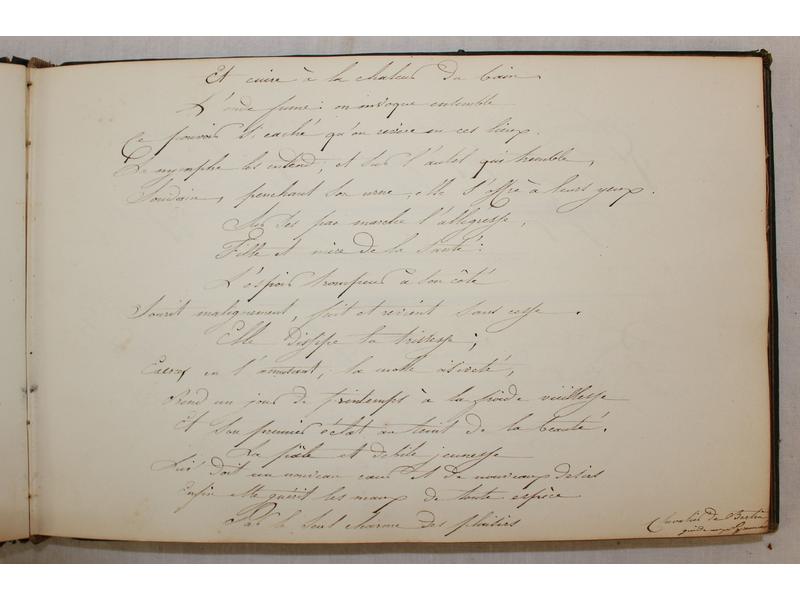 Et cuire à la chaleur du bain
L'onde fume: on invoque ensemble
Ce pouvoir si caché qu'on revère en ces lieux.
La nymphe les entend, et sur l'autel qui tremble,
Soudain, penchant son urne, elle s'offre à leurs yeux.
Sur ses pas marche l'allegresse,
Fille et mère de la Santé:
L'espoir trompeur à son côté
Sourit malignement, fuit et revient sans cesse.
Elle dissipe la tristesse;
en l'amusant, la molle oisiveté,
Rend un jour de printemps à la froide vieillesse
Et son premier éclat au teint de la beauté.
La pâle et debile jeunesse
Lui doit un nouveau cœur et de nouveaux desirs
Enfin elle guérit les maux de toute espèce
Par le seul charme des plaisirs
Chevalier de Bertin